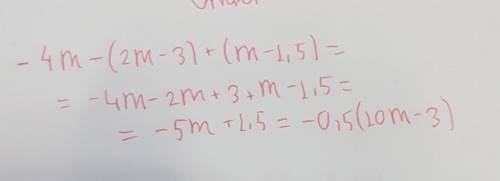 -4m-(2m-3)+(m-1,5)=
=-4m-2m+3+m-1,5=
=-5m+1,5=-0,5(10m-3)